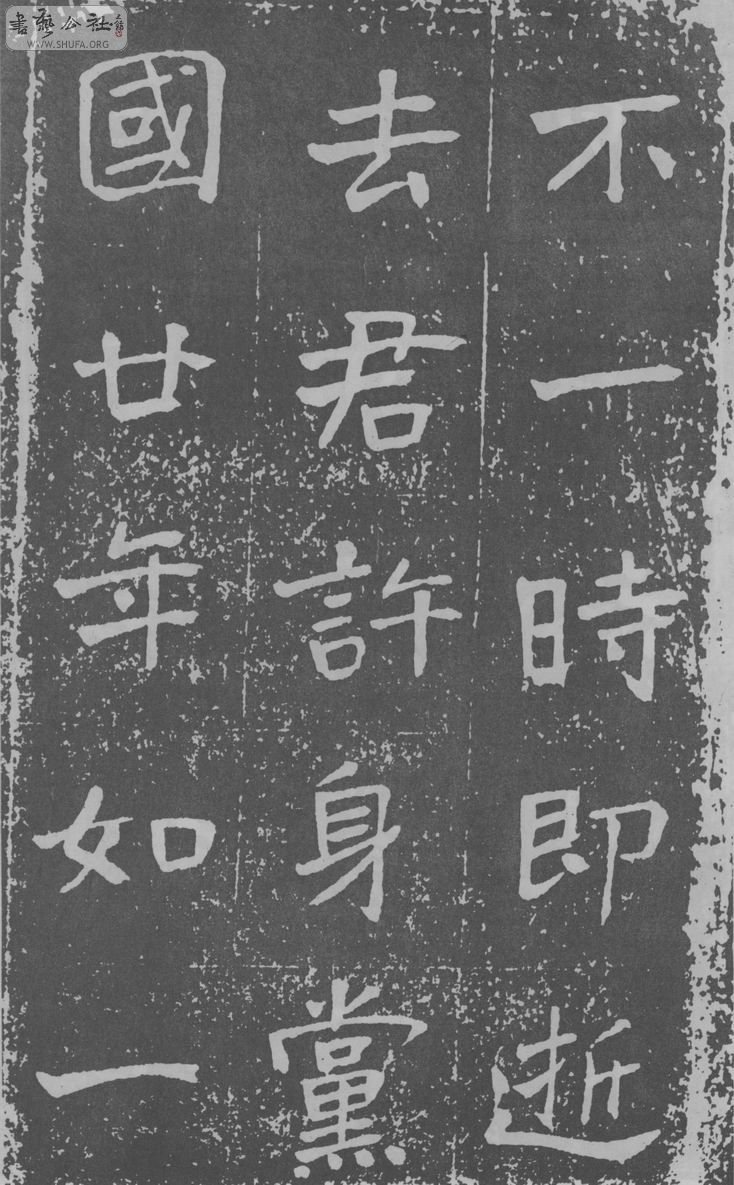 書藝公社
WWW.SHUFA.ORG
不一時即逝
去君許身黨
國廿年如一